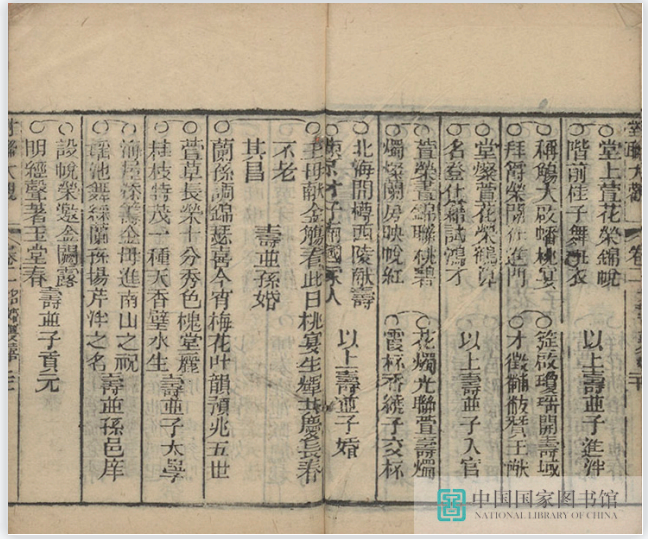 對聯大觀 卷二
○堂上萱花榮錦帨
○階前佳子舞斑衣 以上壽並子進泮
○稱觴大啟蟠桃宴 ○筵啟瓊瑤開壽域
○拜爵榮開仕進門 ○才徵黼黻贊王猷
○堂燦萱花榮鶴
○名登仕籍試鴻才 以上壽並子入官
○萱榮晝錦聯桃碧 ○花燭光聯萱壽燭
○燭燦蘭房映帨紅 ○霞杯香繞子交杯
○北海開樽西陵獻壽
○東京才子南國家人 以上壽並子婚
○王母獻金觴看此日桃宴生輝共慶長春
不老
其昌 壽並孫婚
○蘭孫調錦瑟喜今宵梅花叶韻預兆五世
○萱草長榮十分秀色槐堂麗
○桂枝特茂一種天香璧水生 壽並子太學
○海屋添籌金母進南山之祝
○瑤池舞綵蘭孫揚芹泮之名 壽並孫邑庠
○設帨榮邀金闕露
○明經聲著玉堂春 壽並子貢元
對聯大觀 卷二
中国国家图书馆
NATIONAL LIBRARY OF CHINA